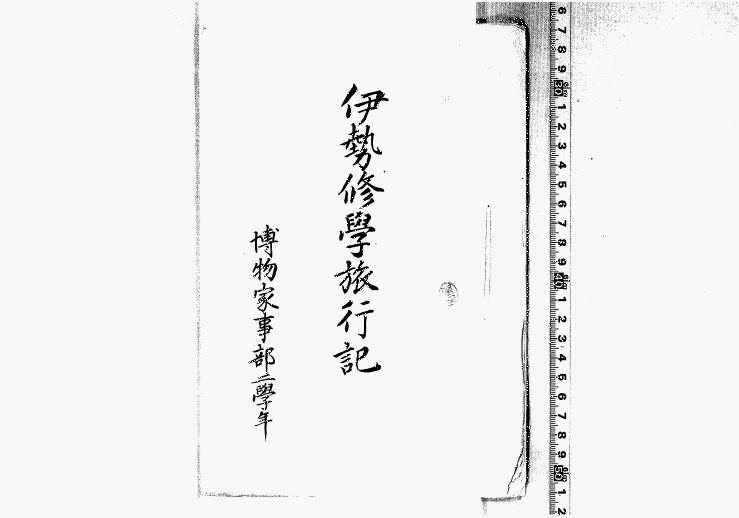 伊勢修學旅行記
博物家事部二學年
6 7 8 9 30 1 2 3 4 5 6 7 8 9 40 1 2 3 4 5 6 7 8 9 50 1 2